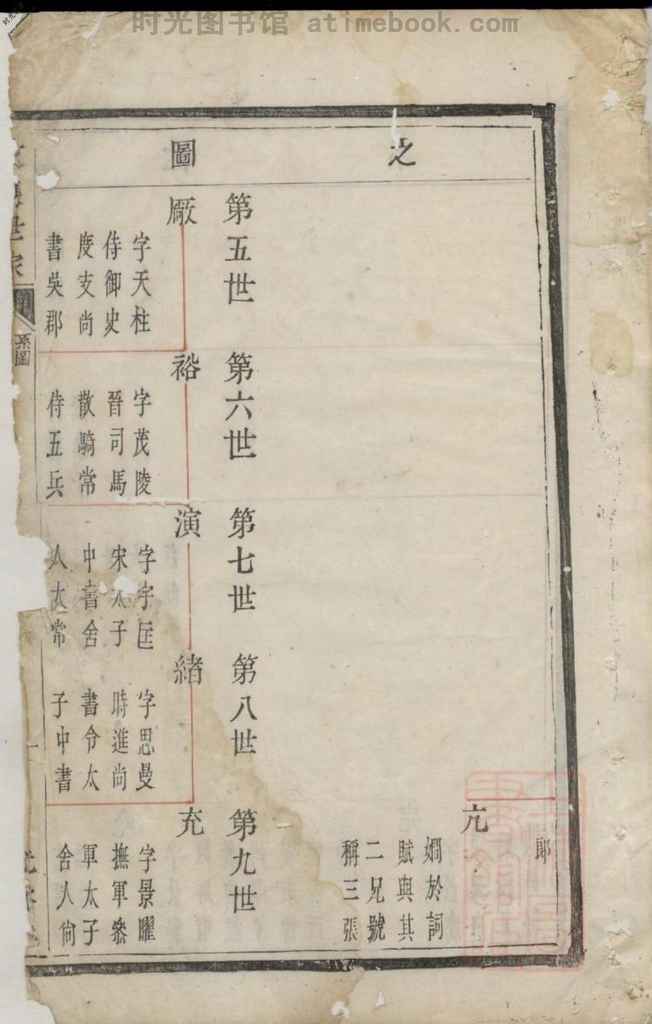 时光图书馆 atimebook.com
之
圖
郎
亢
嫺於詞
賦與其
二兄號
稱三張
第五世
厰
字天柱
侍御史
度支尚
書吳郡
第六世
裕
字茂陵
晉司馬
散騎常
侍五兵
第七世
演
字宇匡
宋太子
中書舍
人太常
第八世
緒
字思曼
時進尚
書令太
子中書
第九世
充
字景曜
撫軍參
軍太子
舍人尙
世家
系圖